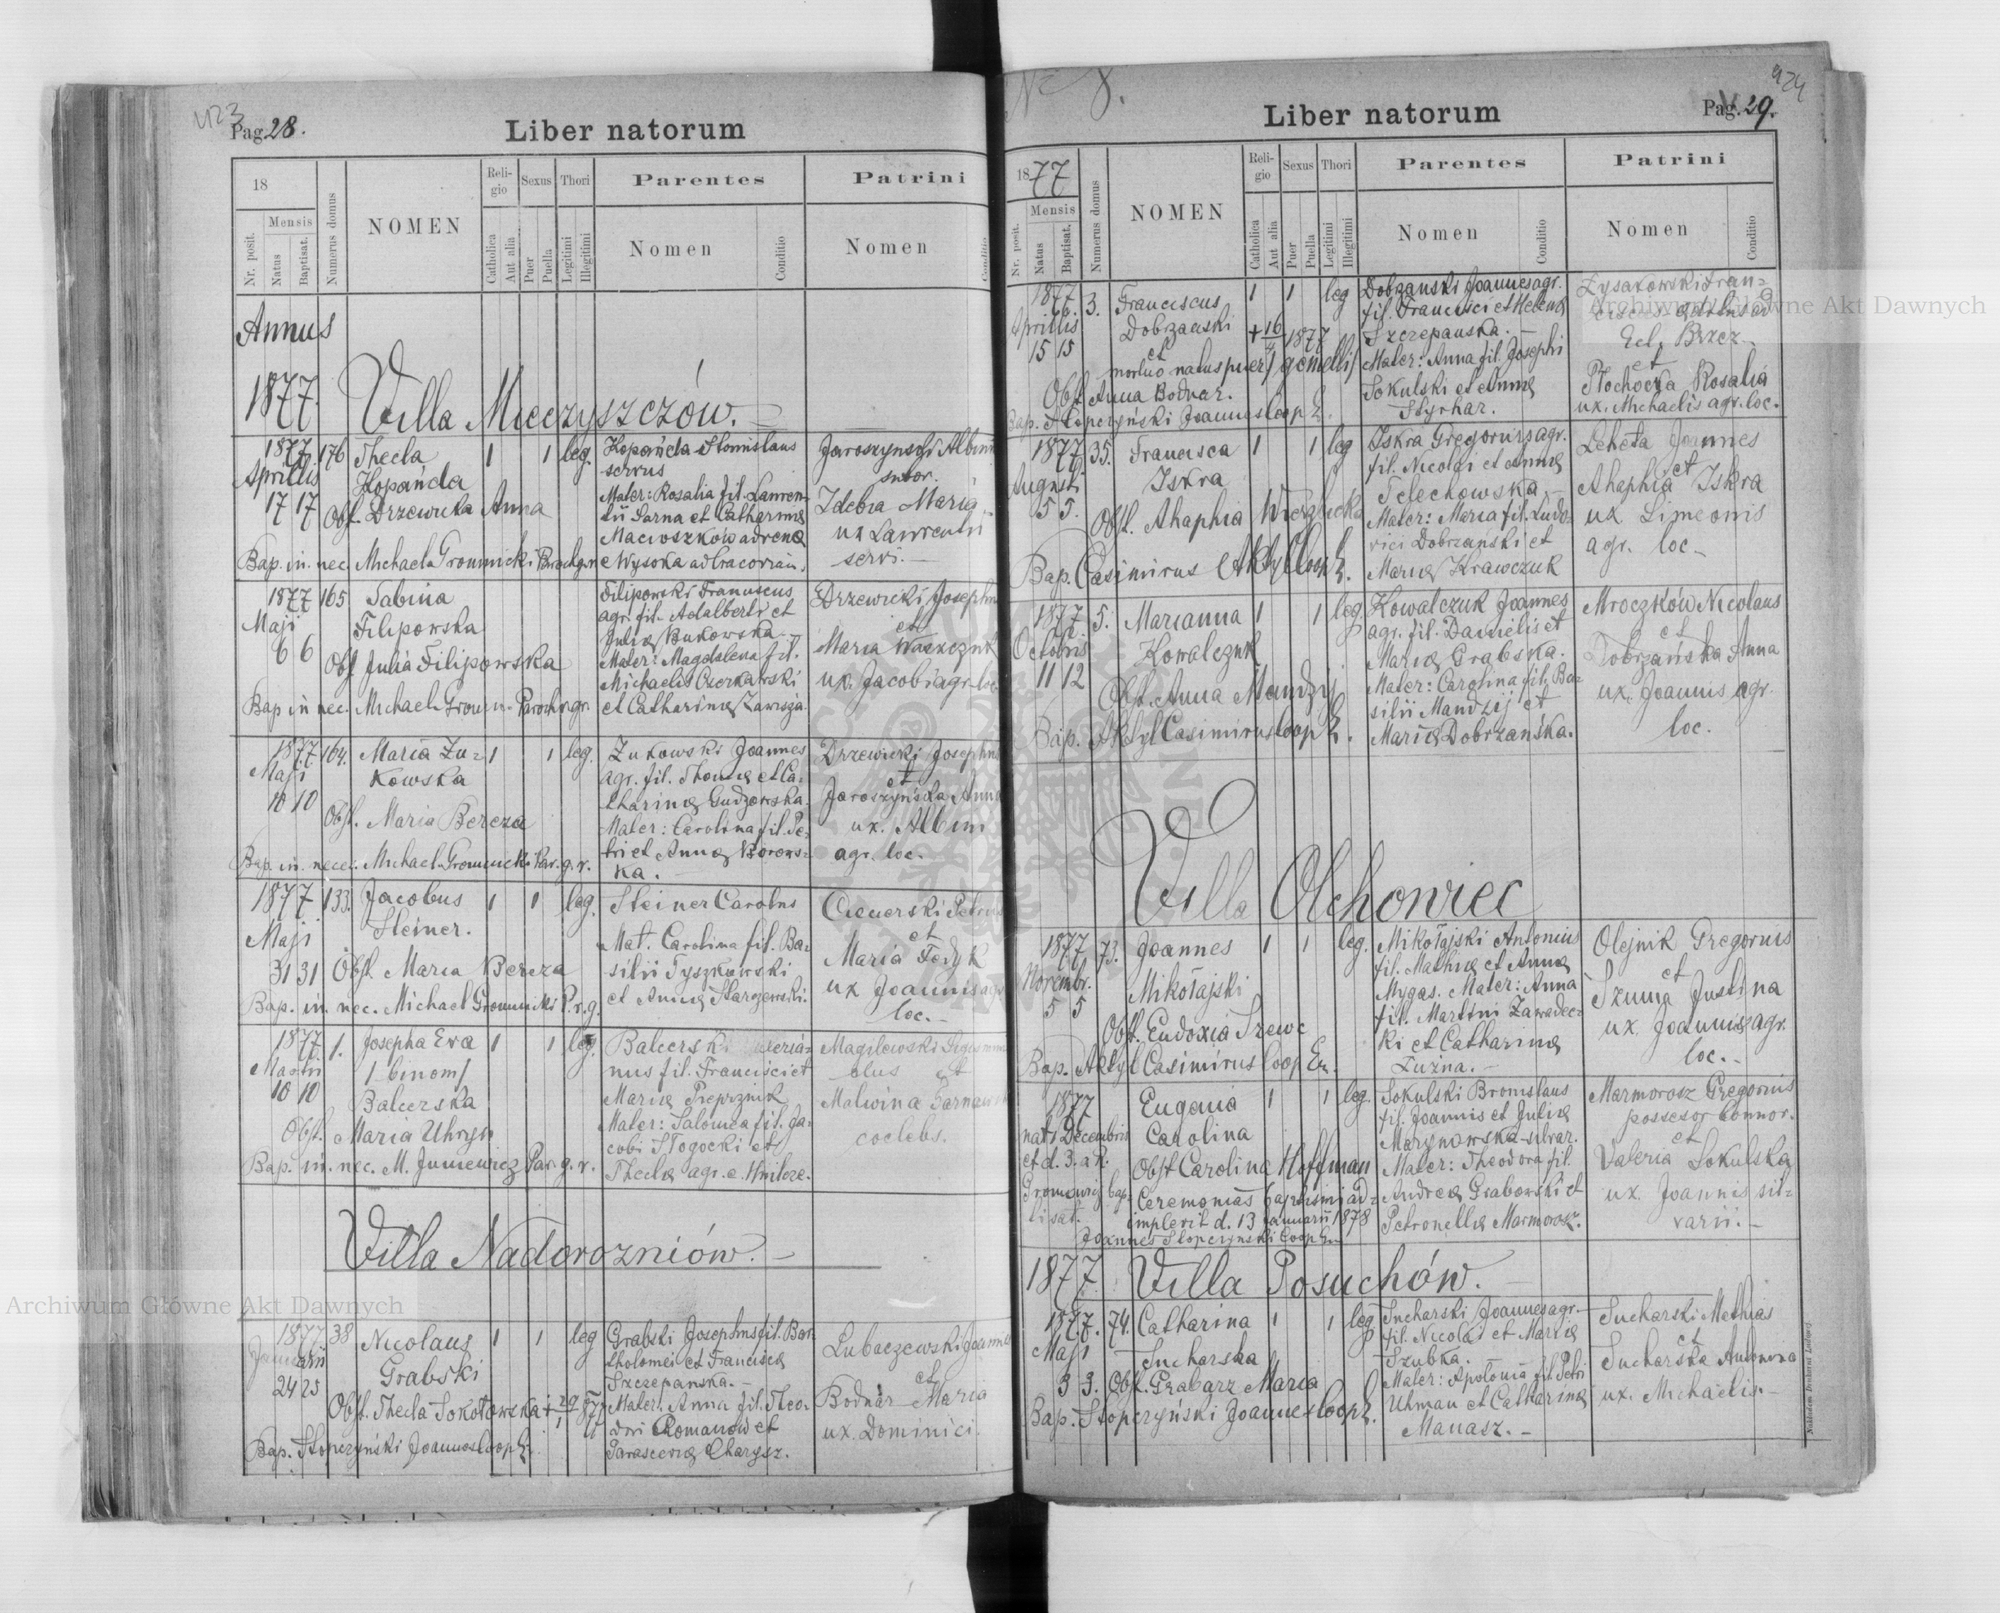 423
Pag. 28.
Liber natorum
18
Mensis
Nr. posit.
Natus
Baptisat.
Numerus domus
NOMEN
Reli-
gio
Catholica
Aut alia
Sexus
Puer
Puella
Thori
Legitimi
Illegitimi
Parentes
Nomen
Conditio
Patrini
Nomen
Conditio
Annus
1877. Villa Mieczyszczów.
1877. 176 Thecla 1 1 leg. Kopańda Stanislaus
Aprilis Kopańda servus
17 17 Obst. Drzewicka Anna
Mater: Rosalia fil. Lauren-
tii Sarna et Catharina
Bap. in. nec. Michael Gromnicki Paroch. gr.
e Wysoka ad Cracoviam.
Jaroszyński Albin
sutor.
Maria
ux Laurentii
servi.
1877 165 Sabina
Maji Filipowska
6 6 Obst Julia Filipowska
Bap in nec. Michael Gromn. Paroch. gr.
Filipowski Franciscus
agr. fil. Adalberti et
Julia Bukowska
Mater: Magdalena fil.
Michaelis Czerkawski
et Catharina Zawisza.
Drzewicki Josephus
et
Maria
ux. Jacobi agr. loc.
1877 164. Maria Zu- 1 1 leg.
Maji kowska
10 10
Obst. Maria Bereza
Bap. in. nece. Michael Gromnicki Par. g. r.
Zukowski Joannes
agr. fil. Thoma et Ca-
tharina Gudzowska.
Mater: Carolina fil. Pe-
tri et Anna Borows-
ka.
Drzewicki Josephus
et
Jaroszyńska Anna
ux. Albini
agr. loc.
1877 133. Jacobus 1 1 leg.
Maji Steiner.
31 31 Obst. Maria Bereza
Bap. in. nec. Michael Gromnicki P. r. g.
Steiner Carolus
Mat. Carolina fil. Ba-
silii Tyszkowski
et Anna
Petrus
et
Maria Fedyk
ux Joannis agr
loc.
1877 1. Josepha Eva 1 1 leg.
/binom/
10 10 Balcerska
Obst. Maria Uhryn
Bap. in. nec. M. Juniewicz Par. g. r.
Balcerski
nus fil. Francisci et
Maria
Mater: Salomea fil. Ja-
cobi Stogocki et
Thecla agr. e.
Magilewski
et
Malwina
coelebs.
Villa Nadorozniów.
1877 38 Nicolaus 1 1 leg
Januarii Grabski
24 25
Obst. Thecla Sokołowska + 29/1 877
Bap. Słopczyński Joannes Coop.
Grabski Josephus fil. Bar-
tholomei et Francisca
Szczepańska.
Mater: Anna fil. Theo-
dori Romanów et
Parasceva Charysz.
Lubaczewski Joannes
et
Bodnar Maria
ux. Dominici.
424
Liber natorum
Pag. 29.
1877
Mensis
Nr. posit.
Natus
Baptisat.
Numerus domus
NOMEN
Reli-
gio
Catholica
Aut alia
Sexus
Puer
Puella
Thori
Legitimi
Illegitimi
Parentes
Nomen
Conditio
Patrini
Nomen
Conditio
1877. 3. Franciscus 1 1 leg
Aprilis Dobrzański + 16/4 1877
15 15 et
mortuo natus puer / gemelli /
Obst Anna Bodnar.
Bap. Słopczyński Joannes Coop.
Dobrzanski Joannes agr.
fil. Francisci et Helena
Szczepańska.
Mater: Anna fil. Josephi
Sokulski et Anna
Styrhar.
Łysakowski Fran-
ciscus
Brzez.
et
Płochocka Rosalia
ux. Michaelis agr. loc.
1877 35. Francisca 1 1 leg
Augusti Iskra
5 5. Obst. Ahaphia Wierzbicka
Bap. Casimirus Aktyl Coop.
Iskra Gregorius agr.
fil. Nicolai et Anna
Telechowska
Mater: Maria fil. Ludo-
vici Dobrzański et
Maria Krawczuk
Joannes
et
Ahaphia Iskra
ux Simeonis
agr. loc
1877 5. Marianna 1 1 leg.
Octobris Kowalczuk
11 12 Obst. Anna Mandzij
Bap. Aktyl Casimirus Coop.
Kowalczuk Joannes
agr. fil. Danielis et
Maria Grabska.
Mater: Carolina fil. Ba-
silii Mandzij et
Maria Dobrzańska.
Mroczków Nicolaus
et
Dobrzańska Anna
ux. Joannis agr.
loc.
Villa Olchowiec
1877 73. Joannes 1 1 leg.
Novembr. Mikołajski
5 5
Obst. Eudoxia Szewc
Bap. Aktyl Casimirus Coop
Mikołajski Antonius
fil. Mathia et Anna
Mygas. Mater: Anna
fil. Martini Zawadec-
ki et Catharina
Luzna.
Olejnik Gregorius
et
Szuma Justina
ux. Joannis agr.
loc.
1877 Eugenia 1 1 leg.
nat. 1 Decembris Carolina
et d. 3. a R. Obst Carolina Hoffman
Gromowij bap- Ceremonias baptismi ad-
tisat. implevit d. 13 Januarii 1878
Joannes Słopczyński Coop
Sokulski Bronislaus
fil. Joannis et Julia
Marynowska silvar.
Mater: Theodora fil.
Andrea Grabowski et
Petronella Marmorosz.
Marmorosz Gregorius
possesor bonnor.
et
Valeria Sokulska
ux. Joannis sil-
varii.
1877 Villa Posuchów.
1877. 74. Catharina 1 1 leg
Maji Sucharska
3 3. Obst. Grabarz Maria
Bap. Słopczyński Joannes Coop.
Sucharski Joannes agr.
fil. Nicolai et Maria
Szubka.
Mater: Apolonia fil. Petri
Uhman et Catharina
Manasz.
Sucharski Mathias
et
Sucharska Antonina
ux. Michaelis.
Archiwum Główne Akt Dawnych
Archiwum Główne Akt Dawnych